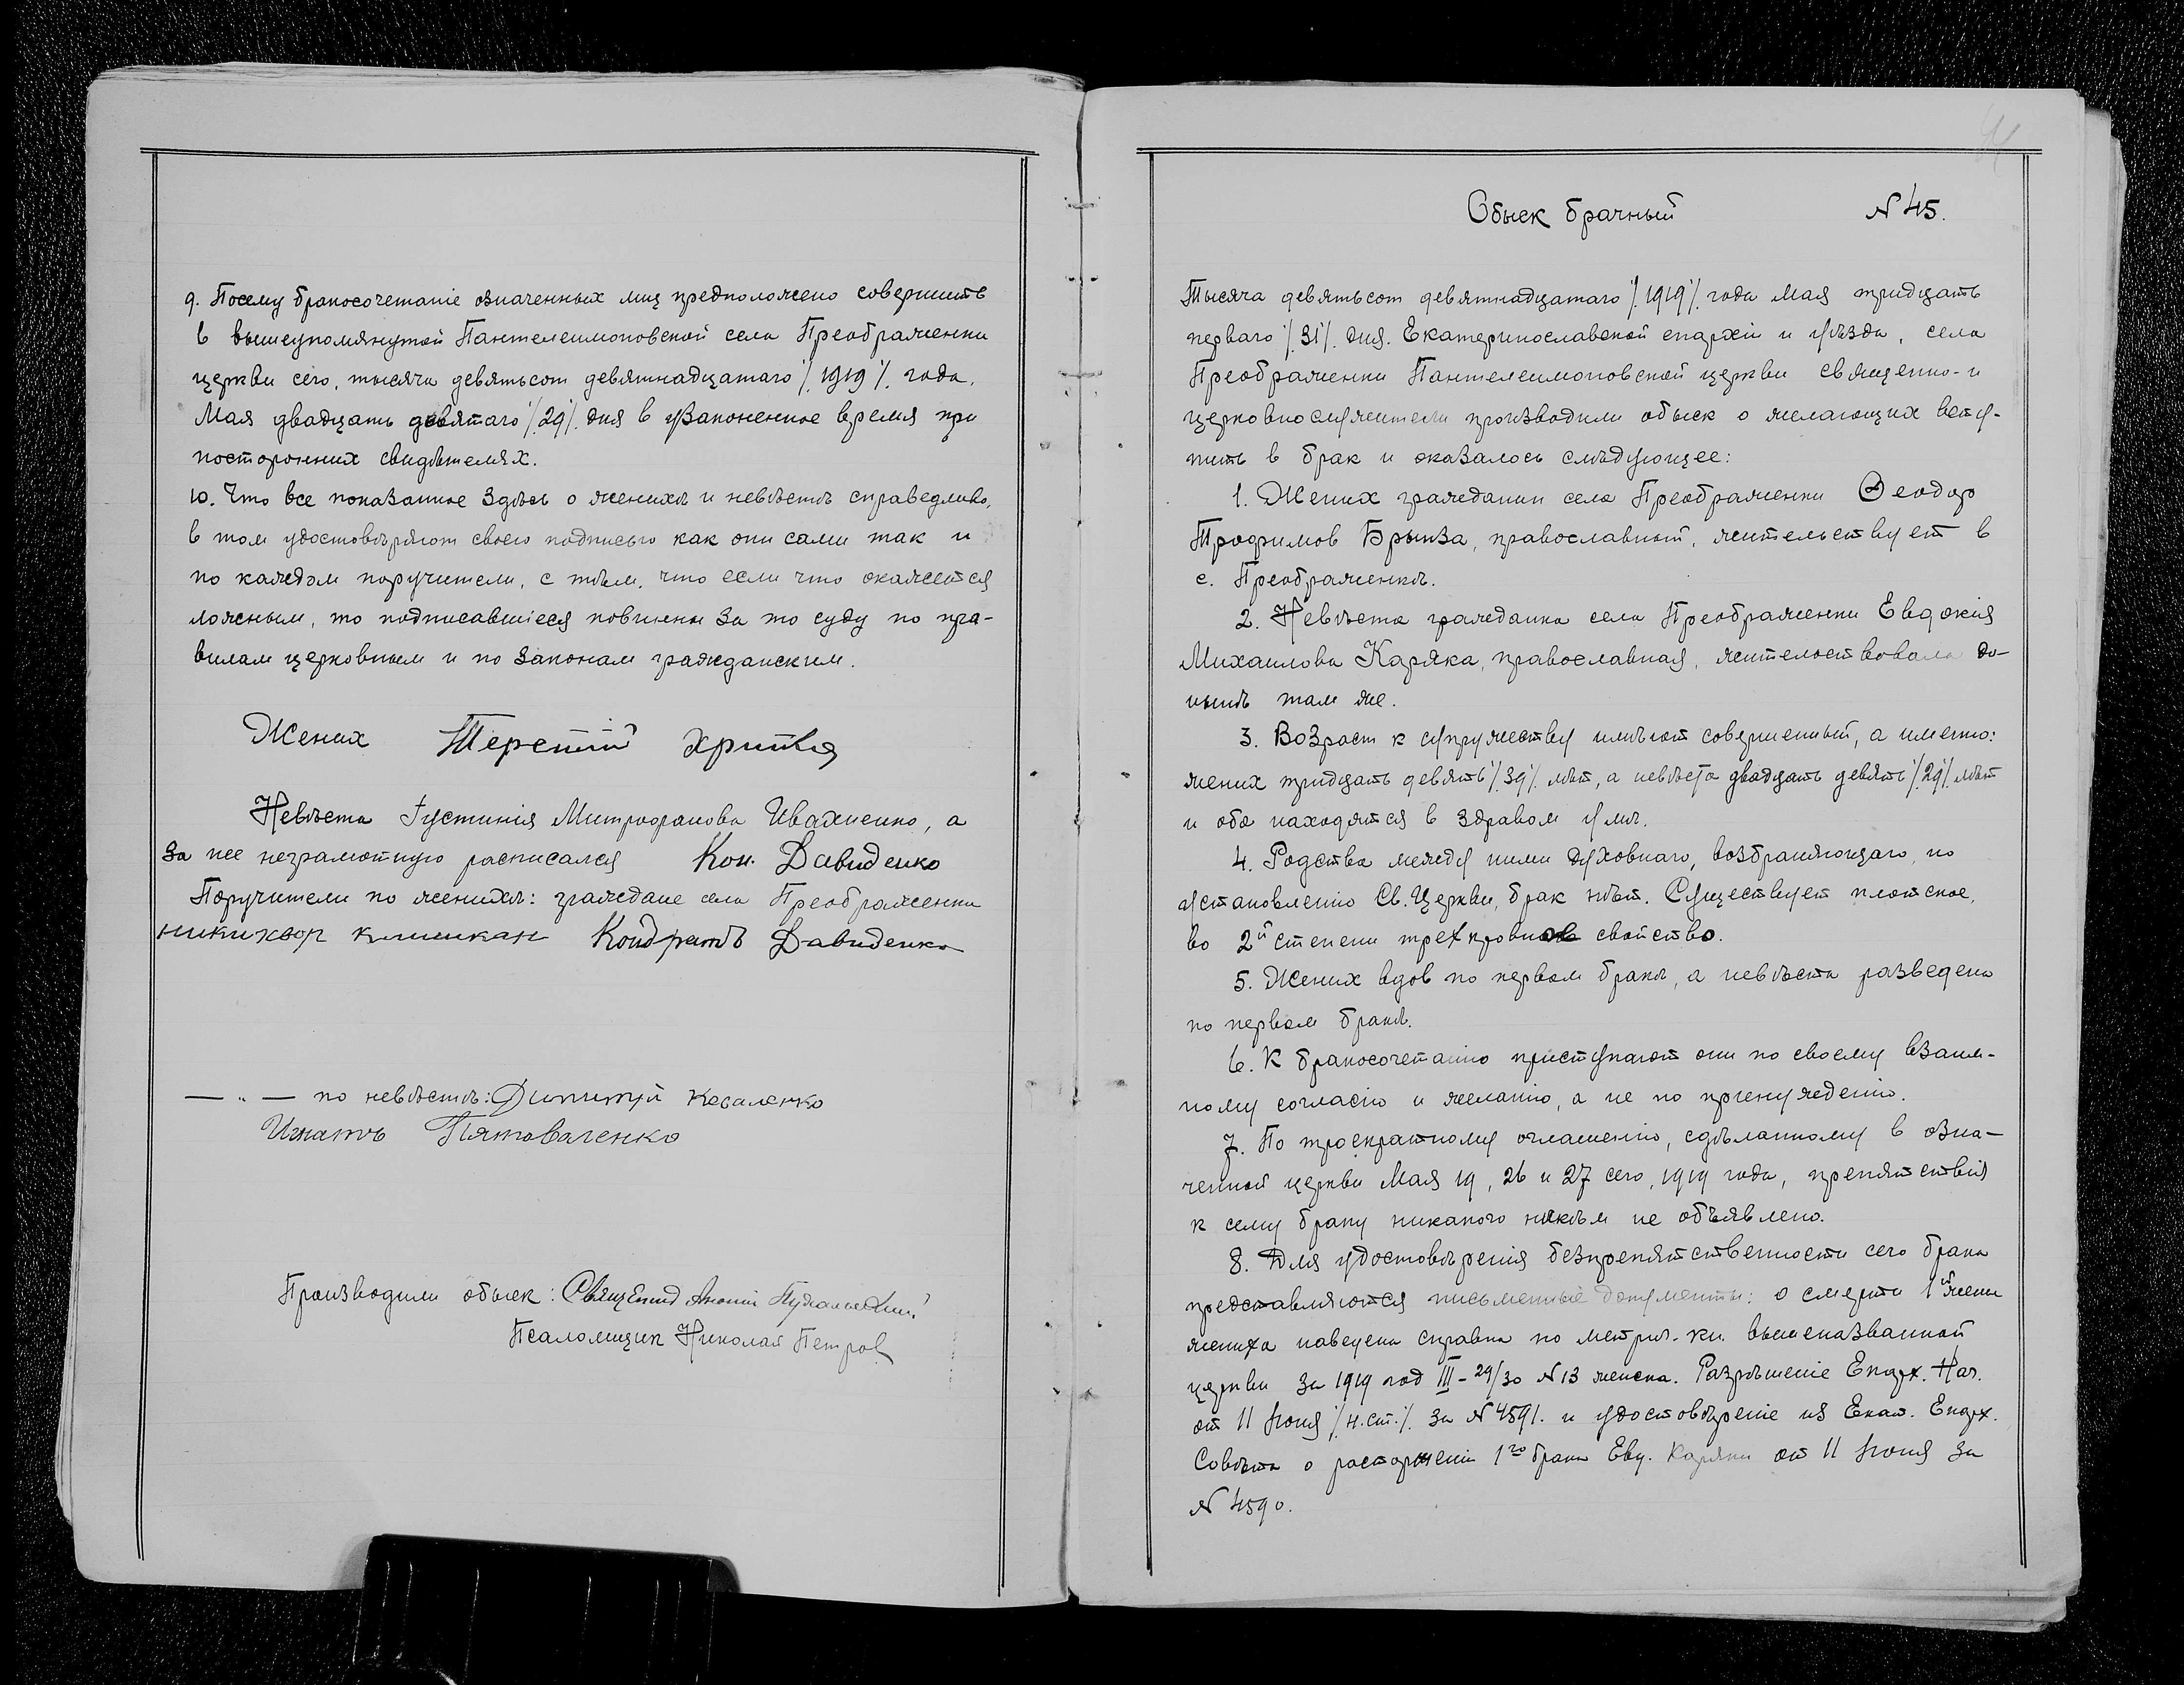 9. Посему бракосочетаніе означенных лиц предположено совершить
в вышеупомянутой Пантелеимоновской села Преображенки
церкви сего, тысяча девятьсот девятнадцатаго /.1919/. года,
Мая двадцать девятаго /.29/. дня в узаконенное время при
посторонних свидѣтелях.
10. Что все показанное здѣсь о женихѣ и невѣстѣ справедливо,
в том удостовѣряют своею подписью как они сами так и
по каждом поручители, с тѣм, что если что окажется
ложным, то подписавшіеся повинны за то суду по пра-
вилам церковным и по законам гражданским.
Жених Терентій
Невѣста Іустинія Митрофанова Ивахненко, а
за нее неграмотную расписался Кон. Давиденко
Поручители по женихѣ: граждане села Преображенки
Никихвор Климкан Кондратъ Давиденко
— " — по невѣстѣ: Димитрій Коваленко
Игнатъ
Производили обыск: Священник
Псаломщик Николай Петров
Обыск брачный N 45.
Тысяча девятьсот девятнадцатаго /.1919/. года Мая тридцать
перваго /.31/. дня. Екатеринославской епархіи и уѣзда, села
Преображенки Пантелеимоновской церкви священно- и
церковнослужители производили обыск о желающих всту-
пить в брак и оказалось слѣдующее:
1. Жених гражданин села Преображенки Ѳеодор
Трофимов Брынза, православный, жительствует в
с. Преображенкѣ.
2. Невѣста гражданка села Преображенки Евдокія
Михаилова Каряка, православная, жительствовала до-
нынѣ там же.
3. Возраст к супружеству имѣют совершенный, а именно:
жених тридцать девять /.39/. лѣт, а невѣста двадцать девять /.29/. лѣт
и оба находятся в здравом умѣ.
4. Родства между ними духовнаго, возбраняющаго, по
установленію Св. Церкви, брак нѣт. Существует плотское,
во 2й степени трехкровное свойство.
5. Жених вдов по первом бракѣ, а невѣста разведена
по первом бракѣ.
6. К бракосочетанію приступают они по своему взаим-
ному согласію и желанію, а не по принужденію.
7. По троекратному оглашенію, сдѣланному в озна-
ченной церкви Мая 19, 26 и 27 сего, 1919 года, препятствія
к сему браку никакого никѣм не объявлено.
8. Для удостовѣренія безпрепятственности сего брака
представляются письменные документы: о смерти 1й жены
жениха наведена справка по метрич. кн. вышеназванной
церкви за 1919 год III - 29/30 N 13 женска. Разрѣшеніе Епарх. Нач.
от 11 Іюня /.н.ст./. за N 4591. и удостовѣреніе из Екат. Епарх.
Совѣта о расторженіи 1го брака Евд. Каряки от 11 Іюня за
N 4590.